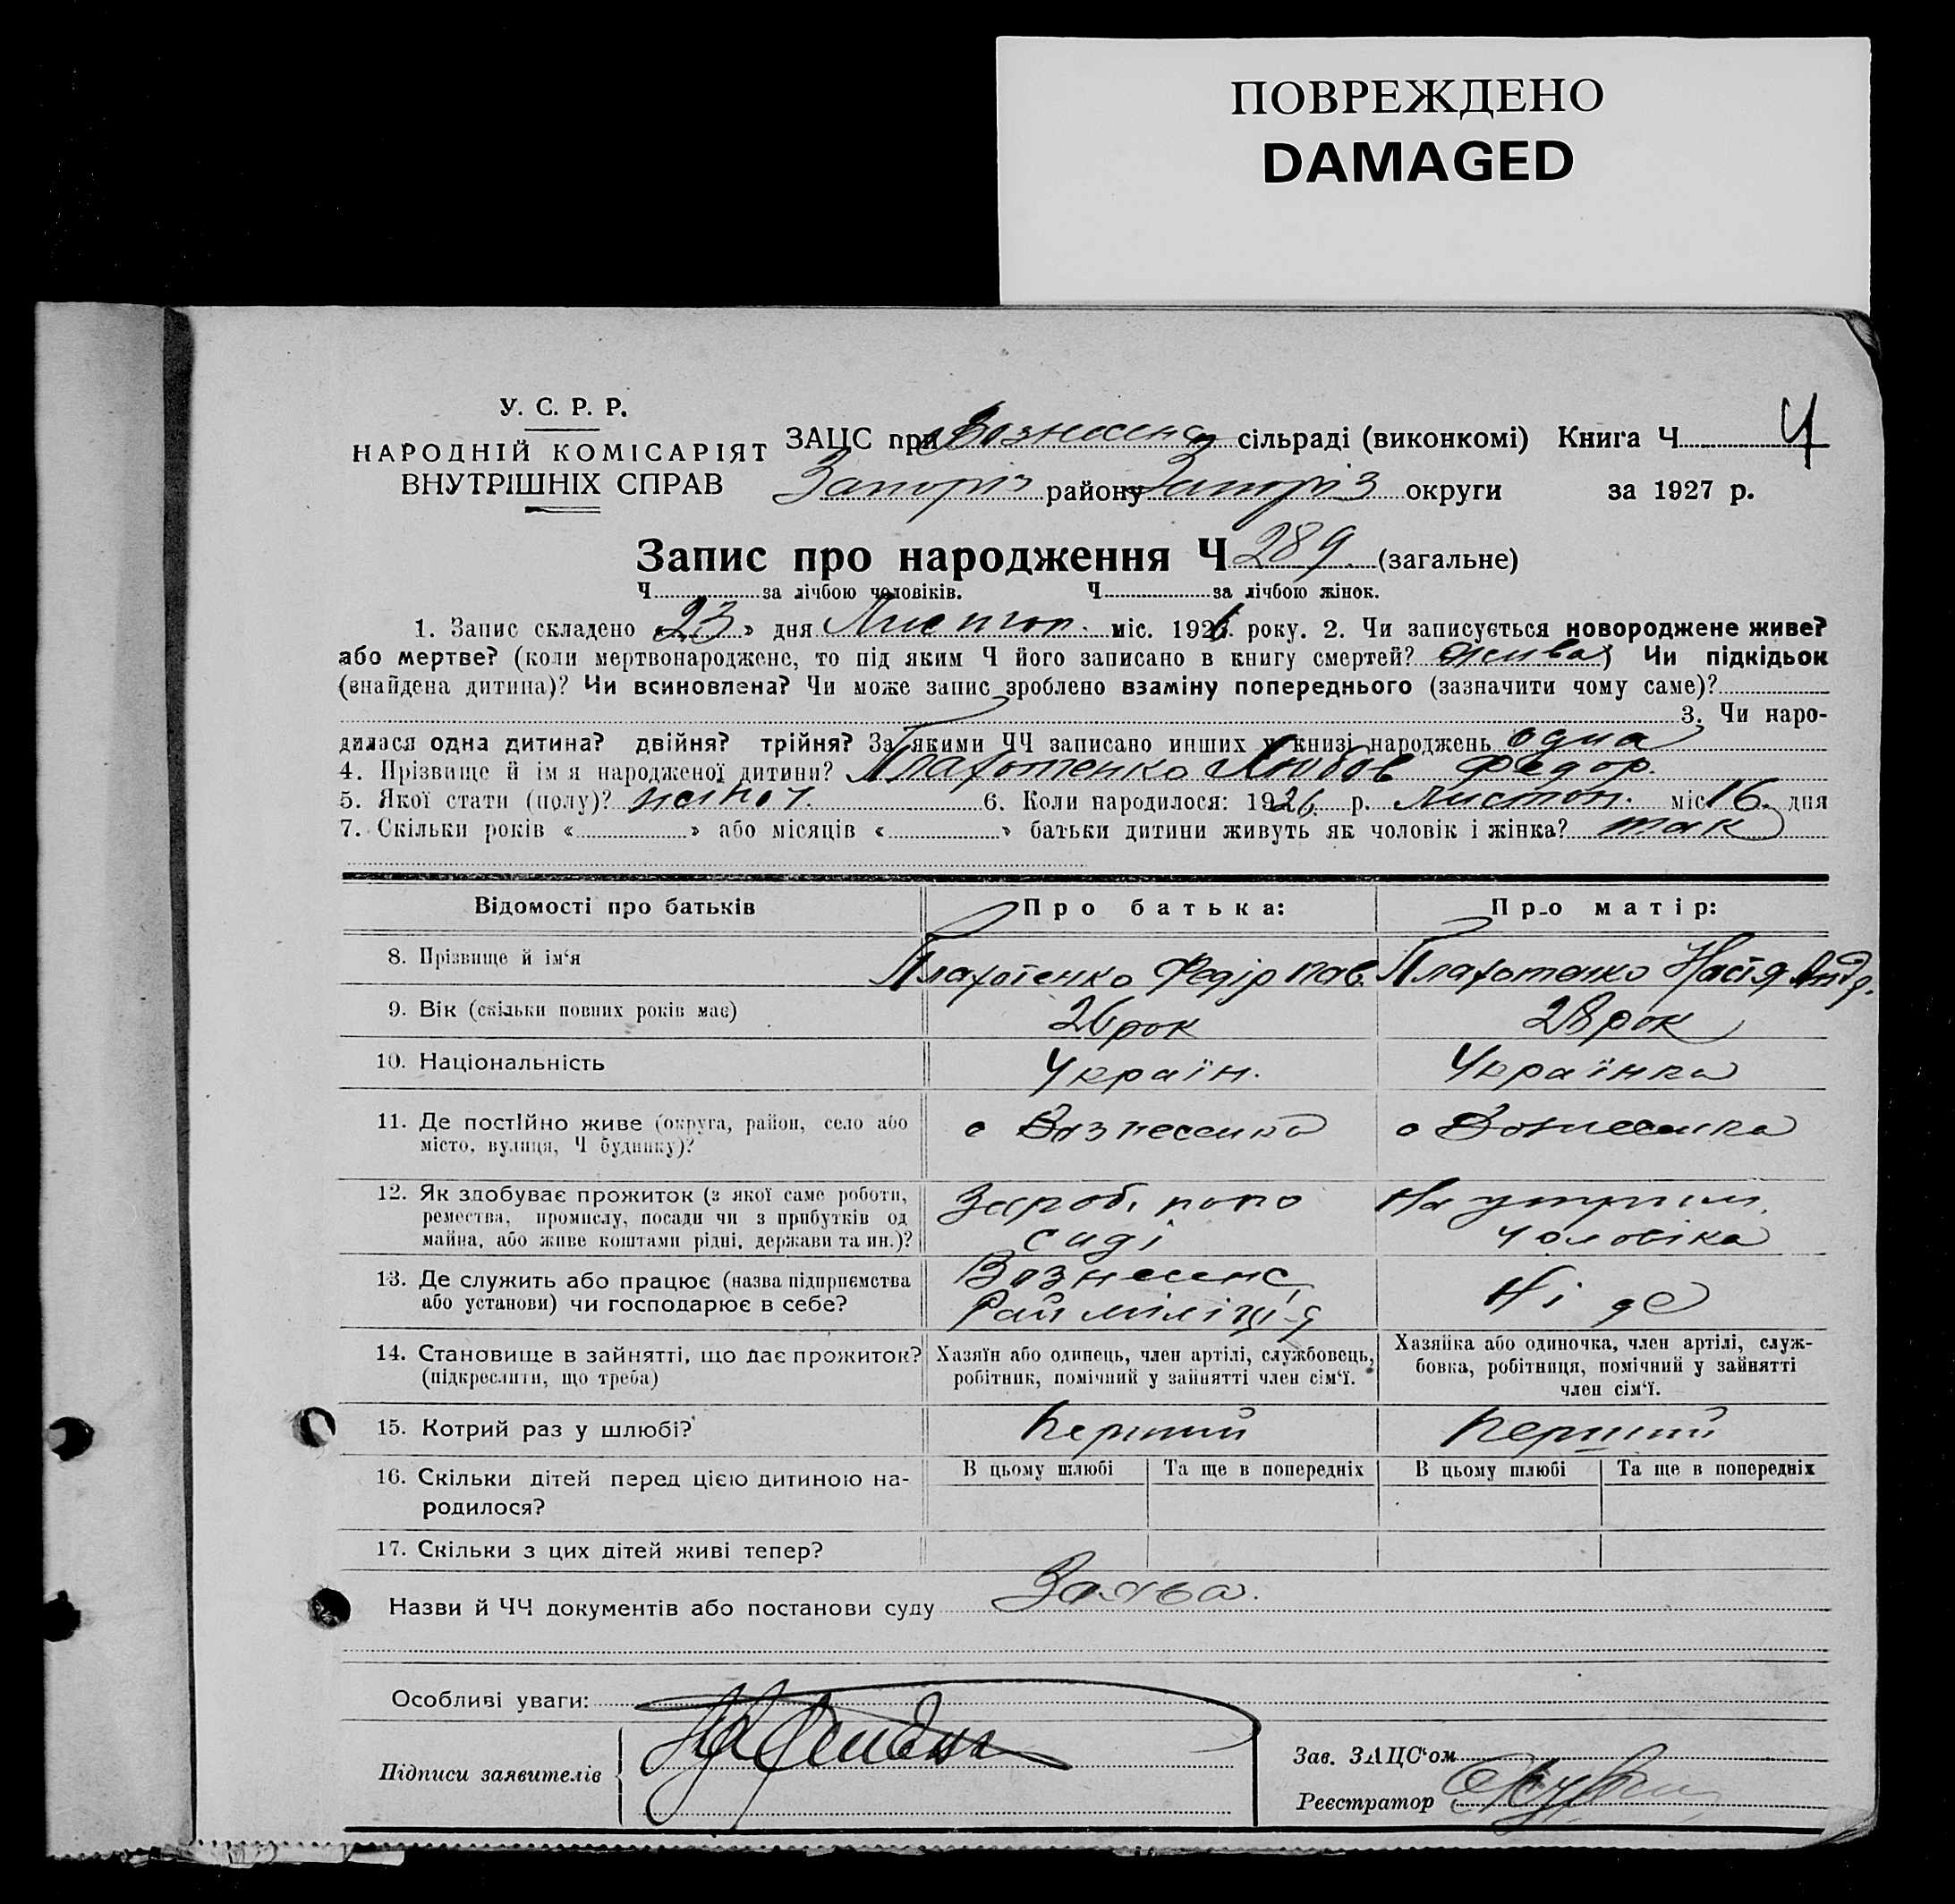 ПОВРЕЖДЕНО
DAMAGED
У. С. Р. Р.
НАРОДНІЙ КОМІСАРІЯТ
ВНУТРІШНІХ СПРАВ
ЗАЦС при Вознесенс сільраді (виконкомі) Книга Ч 4
Запоріз району Запоріз округи за 1927 р.
Запис про народження Ч 289. (загальне)
Ч за лічбою чоловіків. Ч за лічбою жінок.
1. Запис складено 23 » дня Листоп. міс. 1926 року. 2. Чи записується новороджене живе?
або мертве? (коли мертвонароджене, то під яким Ч його записано в книгу смертей? жива) Чи підкідьок
(знайдена дитина)? Чи всиновлена? Чи може запис зроблено взаміну попереднього (зазначити чому саме)?
3. Чи наро-
дилася одна дитина? двійня? трійня? За якими ЧЧ записано инших у книзі народжень одна
4. Прізвище й ім я народженої дитини? Плахотенко Любов Федор.
5. Якої стати (полу)? жіноч. 6. Коли народилося: 1926 р. Листоп. міс 16. дня
7. Скільки років « » або місяців « » батьки дитини живуть як чоловік і жінка? так
Відомості про батьків
Про батька:
Про матір:
8. Прізвище й ім‘я
Плахотенко Федір Пав.
Плахотенко Настя Андр.
9. Вік (скільки повних років має)
26 рок
28 рок
10. Національність
Україн.
Українка
11. Де постійно живе (округа, район, село або
місто, вулиця, Ч будинку)?
с Вознесенка
с Вознесенка
12. Як здобуває прожиток (з якої саме роботи,
ремества, промислу, посади чи з прибутків од
майна, або живе коштами рідні, держави та ин.)?
Зароб. по по
саді
На утрим.
чоловіка
13. Де служить або працює (назва підприємства
або установи) чи господарює в себе?
Вознесенс
Рай міліція
Ні де
14. Становище в зайнятті, що дає прожиток?
(підкреслити, що треба)
Хазяїн або одинець, член артілі, службовець,
робітник, помічний у зайнятті член сім‘ї.
Хазяйка або одиночка, член артілі, служ-
бовка, робітниця, помічний у зайнятті
член сім‘ї.
15. Котрий раз у шлюбі?
Перший
Перший
16. Скільки дітей перед цією дитиною на-
родилося?
В цьому шлюбі Та ще в попередніх В цьому шлюбі Та ще в попередніх
17. Скільки з цих дітей живі тепер?
Назви й ЧЧ документів або постанови суду Заява.
Особливі уваги:
Підписи заявителів
Зав. ЗАЦС‘ом
Реєстратор